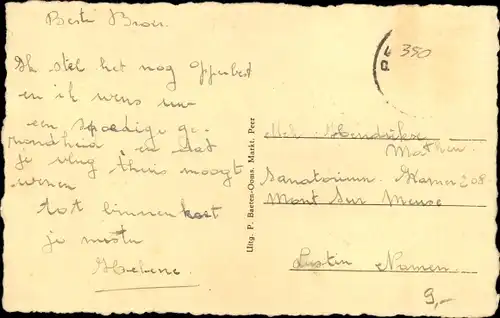 Beste Broer.
Ik stel het nog opperbest
en ik wens
een spoedige ge-
zondheid en dat
je vlug thuis moogt
wenen
tot binnenkort
je
Helene.
Uitg. P. Baeten-Ooms, Markt, Peer
390
Hendrikse
Mathen
Sanatorium Kamer 208
Mont Sur Meuse
Lustin Namen
9,-